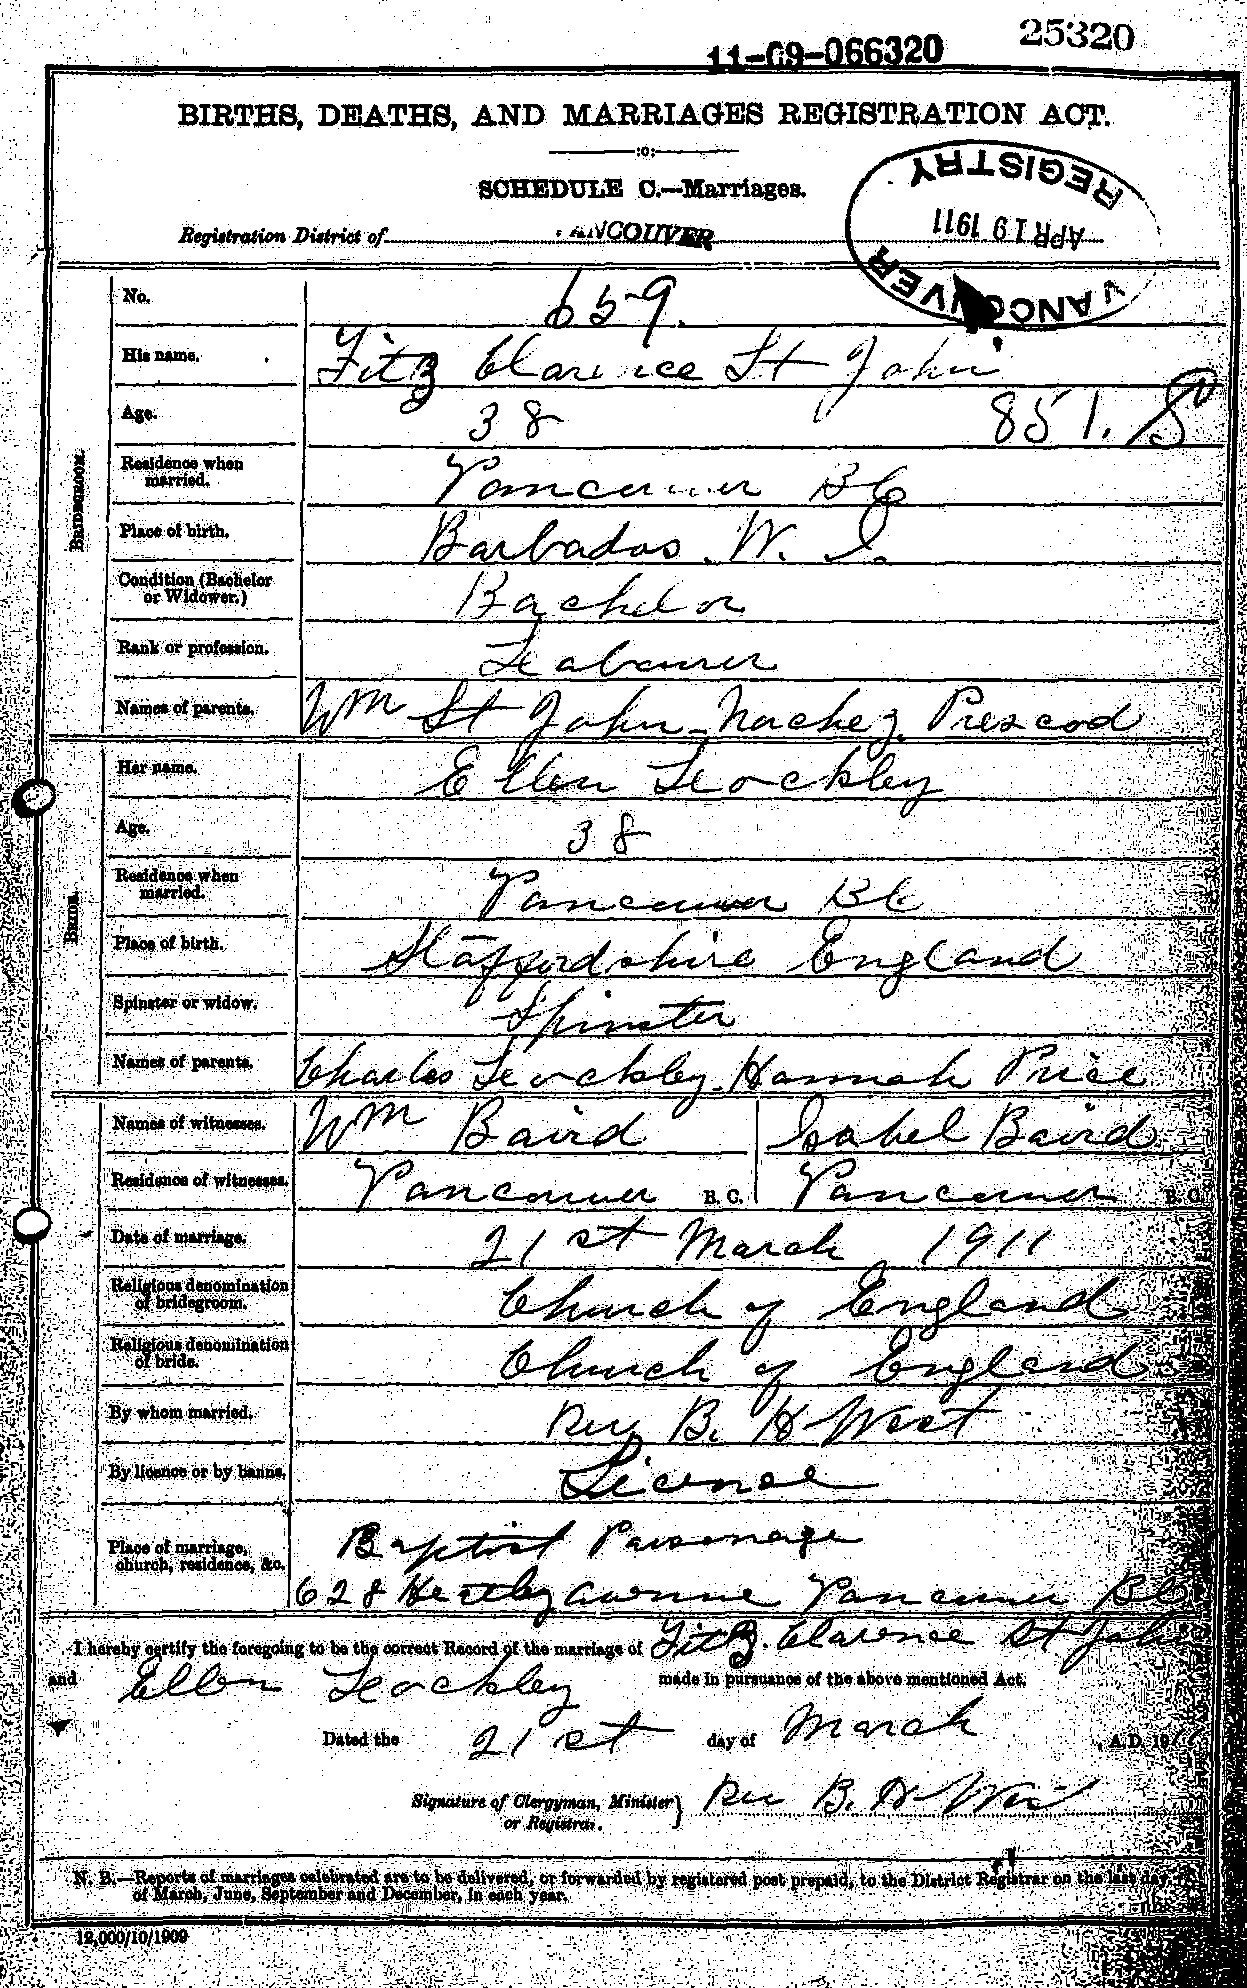 11-09-066320 25320
BIRTHS, DEATHS, AND MARRIAGES REGISTRATION ACT.
SCHEDULE C.—Marriages.
Registration District of VANCOUVER
VANCOUVER
APR 19 1911
REGISTRY
No. 659.
His name. Fitz Clarence St John
Age. 38 851.
Residence when married. Vancouver BC
Place of birth. Barbados. W. I.
Condition (Bachelor or Widower.) Bachelor
Rank or profession. Leabourer
Names of parents. Wm St John Prescod
BRIDEGROOM.
Her name. Ellen Lockley
Age. 38
Residence when married. Vancouver BC
Place of birth. Staffordshire England
Spinster or widow. Spinster
Names of parents. Charles Lockley. Hannah Price
BRIDE.
Names of witnesses. Wm Baird Isabel Baird
Residence of witnesses. Vancouver B. C. Vancouver B. C.
Date of marriage. 21st March 1911
Religious denomination of bridegroom. Church of England
Religious denomination of bride. Church of England
By whom married. Rev B. H West
By licence or by banns. License
Place of marriage, church, residence, &c. Baptist Parsonage
628 avenue Vancouver BC
I hereby certify the foregoing to be the correct Record of the marriage of Fitz. Clarence St John
and Ellen Lockley made in pursuance of the above mentioned Act.
Dated the 21st day of March , A.D. 1911
Signature of Clergyman, Minister or Registrar. } Rev B. H West
N. B.—Reports of marriages celebrated are to be delivered, or forwarded by registered post prepaid, to the District Registrar on the last day
of March, June, September and December, in each year.
12,000/10/1909